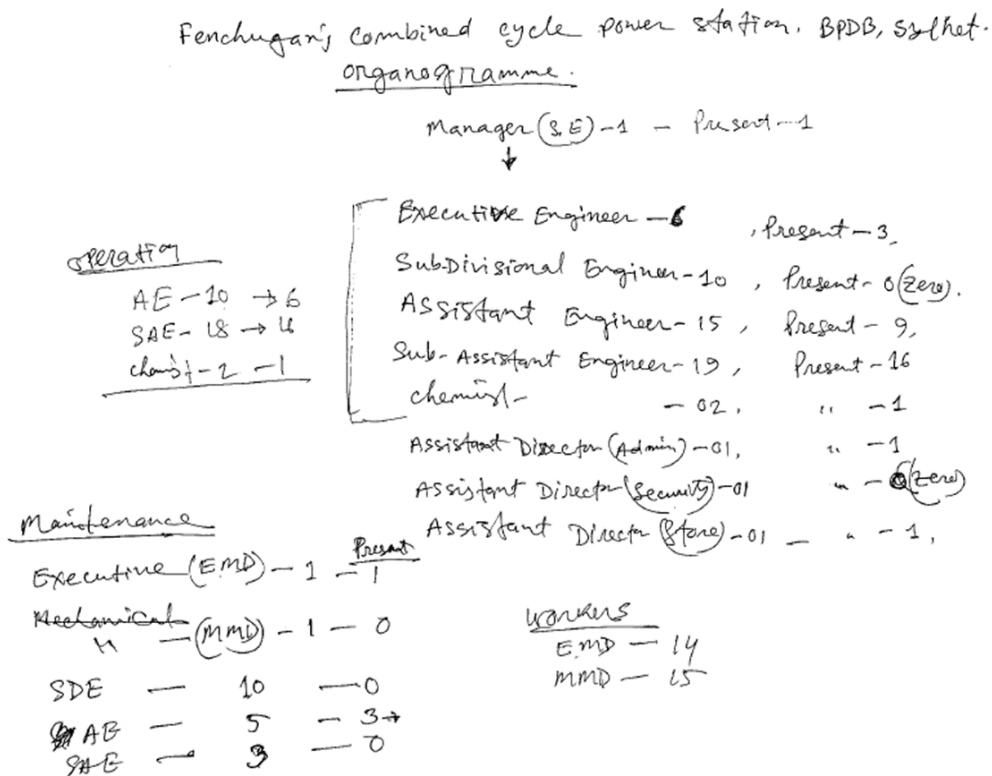 Fenchuganj combined cycle power station. BPDB, Sylhet.
organogramme.
Manager (S.E) - 1 - Present - 1
Executive Engineer - 6 , Present - 3,
Sub-Divisional Engineer - 10 , Present - 0 (Zero).
Assistant Engineer - 15 , Present - 9,
Sub-Assistant Engineer - 19 , Present - 16
chemist - - 02, " - 1
Assistant Director (Admin) - 01, " - 1
Assistant Director (Security) - 01 " - 0 (Zero)
Assistant Director (Store) - 01 - " - 1,
operation
AE - 10 → 6
SAE - 18 →
chemist - 2 - 1
Maintenance
Present
Executive (EMD) - 1 - 1
Mechanical
" - (MMD) - 1 - 0
SDE - 10 - 0
AE - 5 - 3 →
SAE - 3 - 0
Workers
EMD - 14
MMD - 15